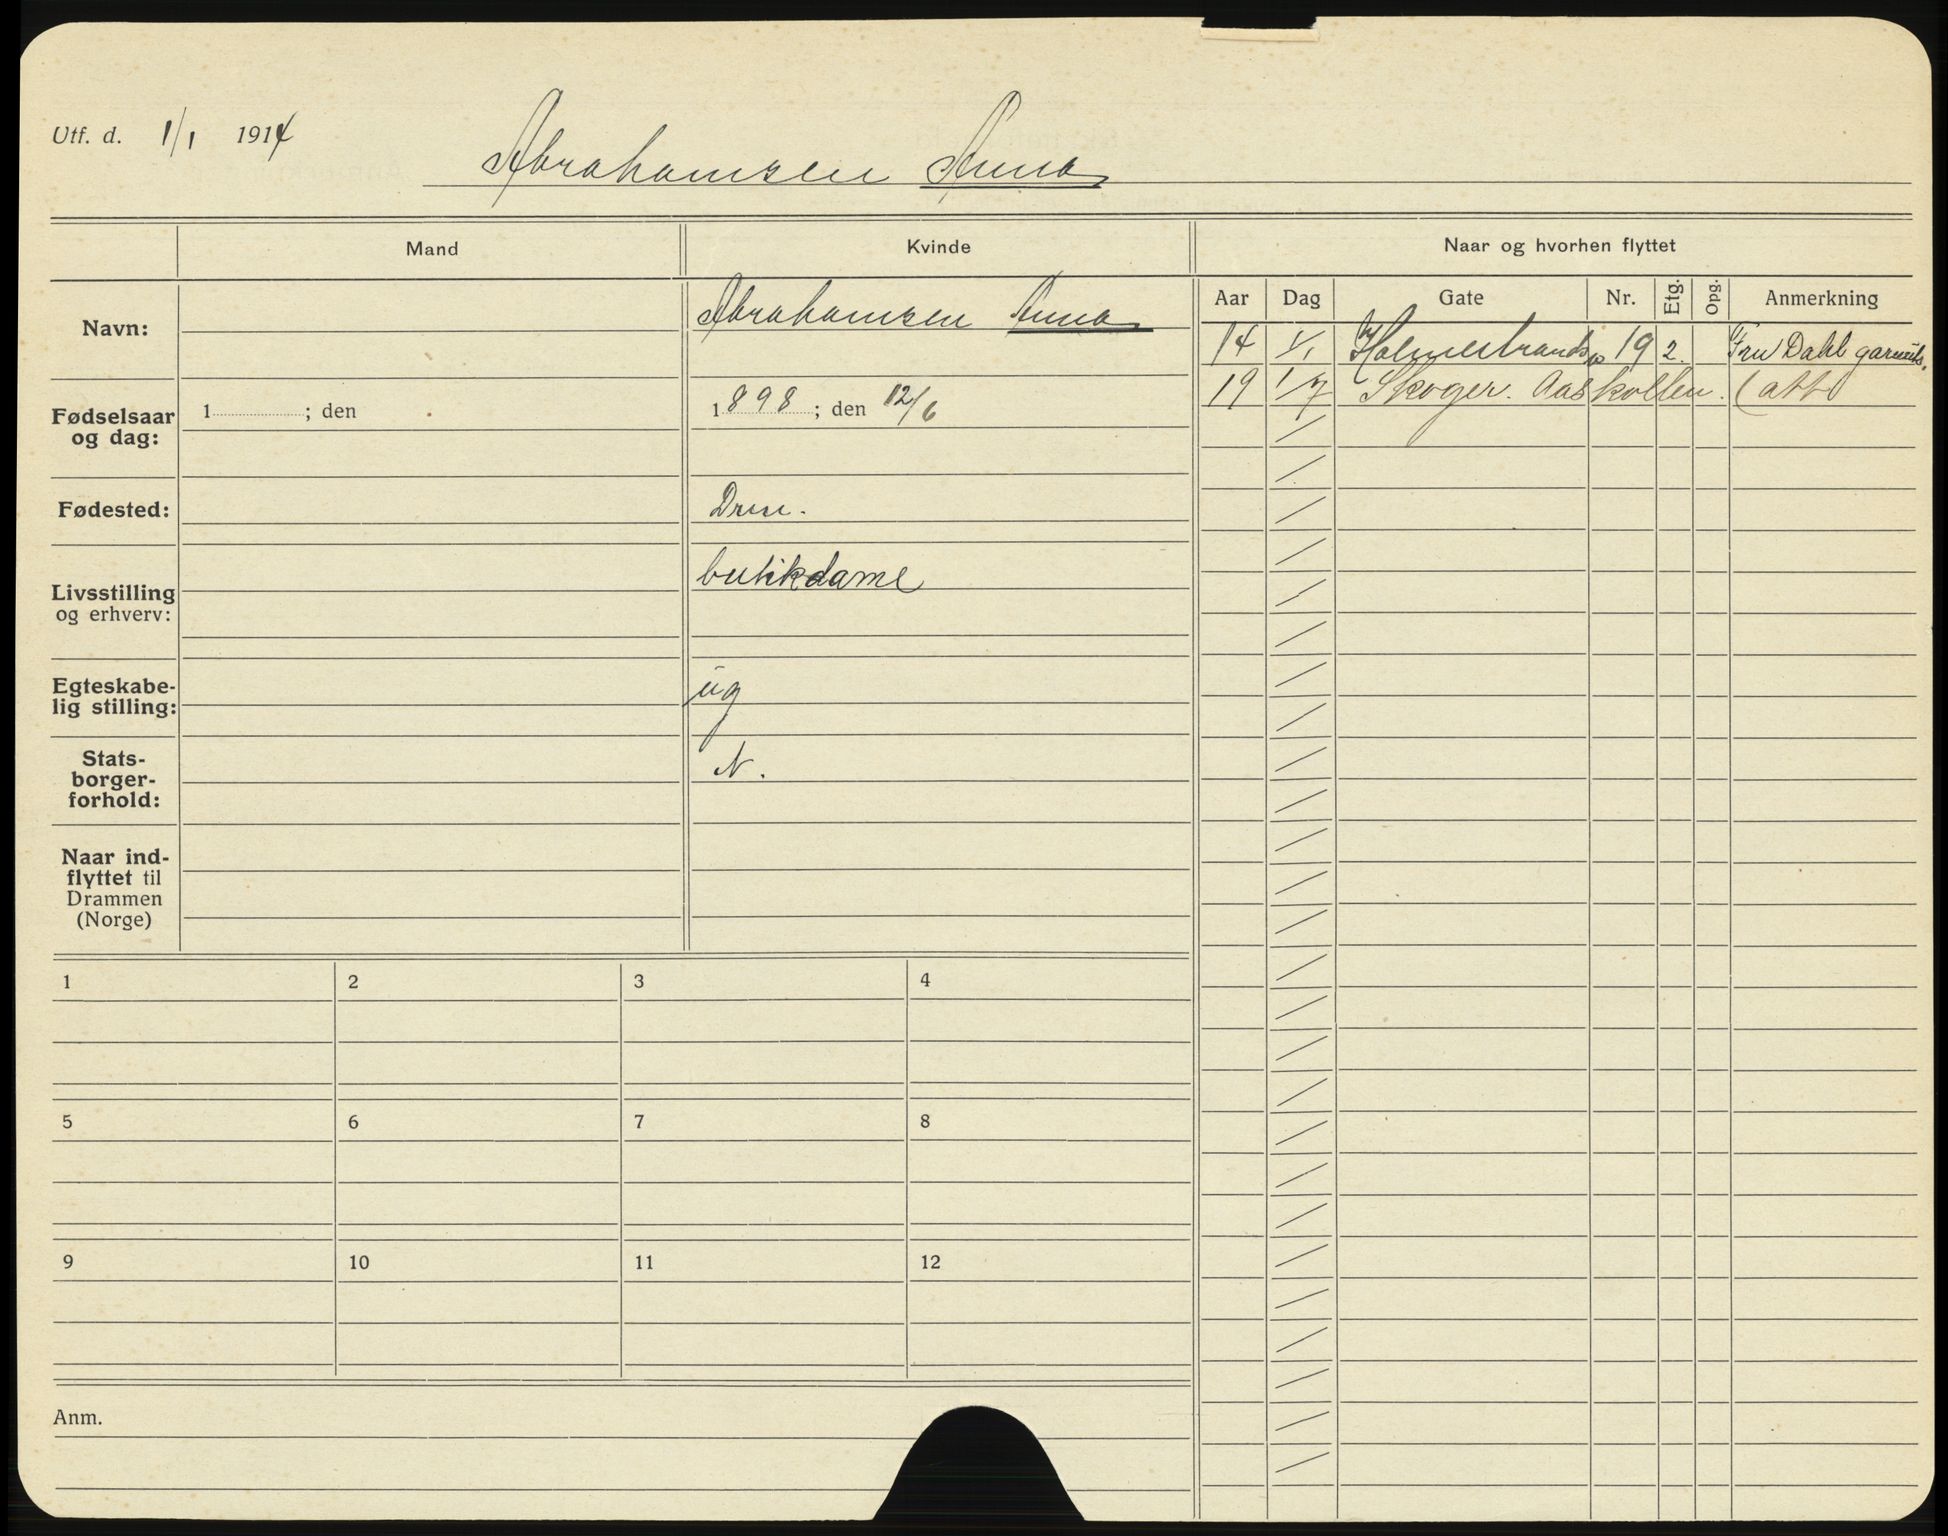 Utf. d. 1/1 1914
Abrahamsen Anna
Mand Kvinde Naar og hvorhen flyttet
Aar Dag Gate Nr. Etg. Opg. Anmerkning
Navn: Abrahamsen Anna
14 1/1 Holmestrands 19 2. Fru Dahl
19 1/7 Skoger. Aaskollen. (att)
Fødselsaar og dag: 1 ; den 1898 ; den 12/6
Fødested: Drm.
Livsstilling og erhverv: butikdame
Egteskabe-
lig stilling: ug
Stats-
borger-
forhold: N.
Naar ind-
flyttet til
Drammen
(Norge)
1 2 3 4
5 6 7 8
9 10 11 12
Anm.